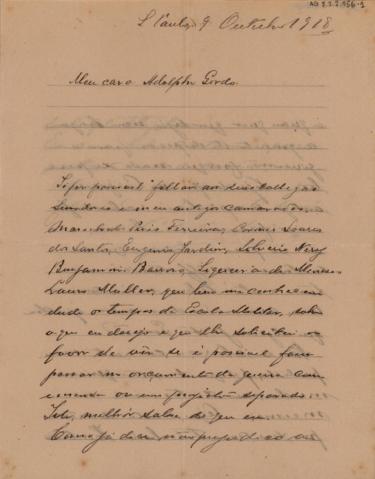 AG 2.2.2.156-1
S. Paulo, 9 Outubro 1918
Meu caro Adolpho Gordo
Si for possivel fallar aos seus collegas
Senadores e meus antigos camaradas,
Marechal Pires Ferreira, Soares
dos Santos, Eugenio Jardim, Silverio Nery
Benjamin Barroso, de Menezes
Lauro Müller, que bem me conhecem
desde o tempo da Escola Militar, sobre
o que eu desejo e que lhe solicitei o
favor de vêr se é possivel fazer
passar no orçamento da guerra com
emenda ou um projecto separado.
melhor sabe do que eu.
Como já disse, não prejudico a